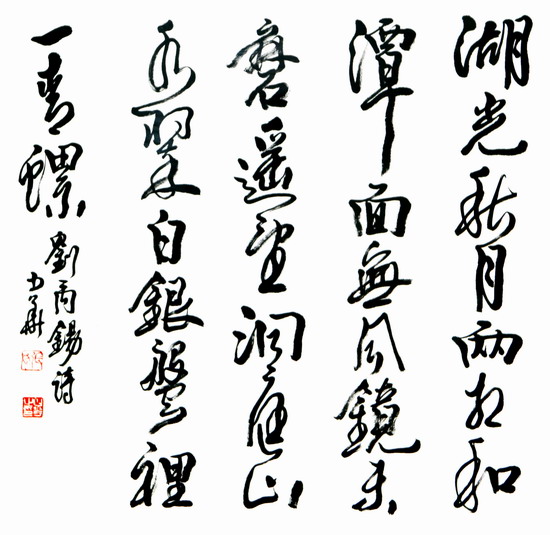 湖光秋月两相和
潭面無風鏡未
磨遥望洞庭山
水翠白銀盤裡
一青螺
劉禹錫詩